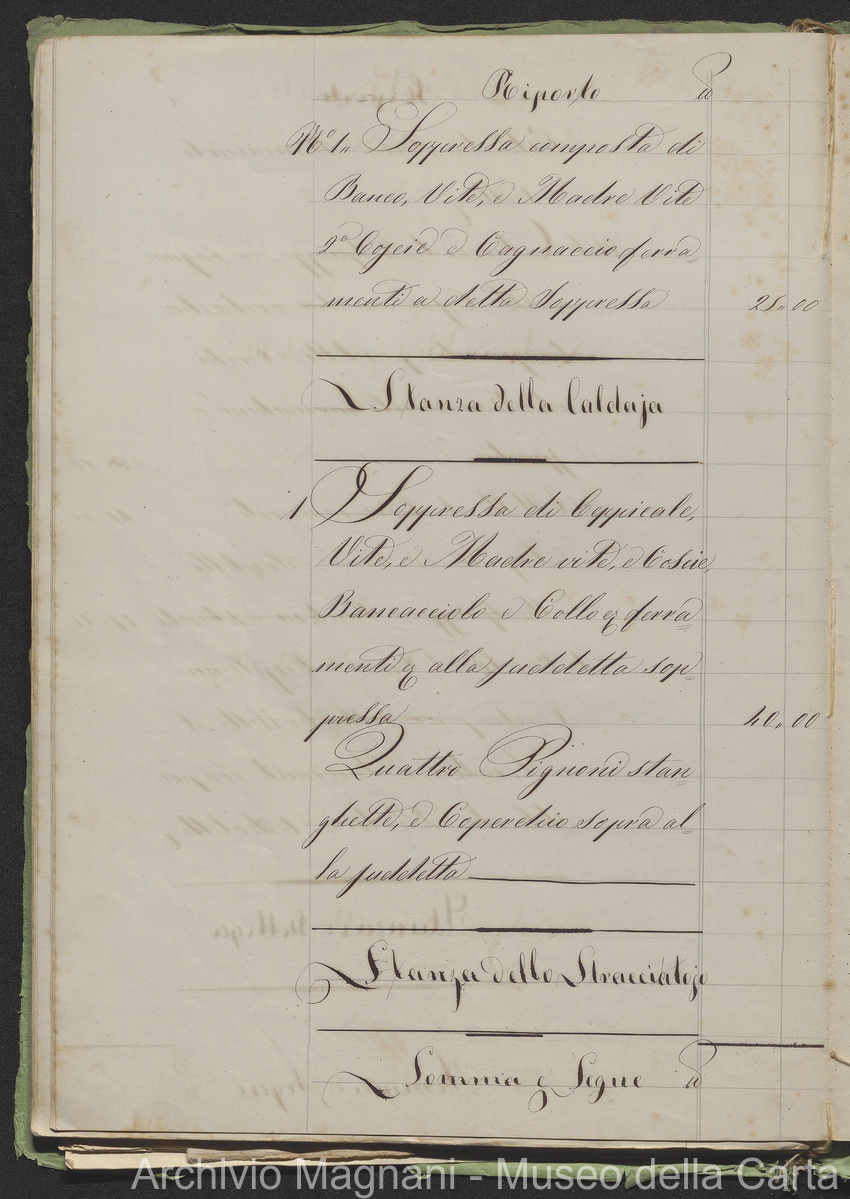 Riporto
N.o 1,, Soppressa composta di
Banco, Vite, e Madre Vite
Coscie e Cagnaccio ferra=
menti a detta Soppressa 25,,00
Stanza della Caldaja
1 Soppressa di Ceppicale,
Vite, e Madre vite, e Coscie,
Bancacciolo e Collo e ferra=
menti e alla suddetta sop=
pressa 40,,00
Quattro Pignoni stan=
ghette, e Coperchio sopra al=
la suddetta
Stanza dello Stracciatojo
Somma e Segue
Archivio Magnani - Museo della Carta